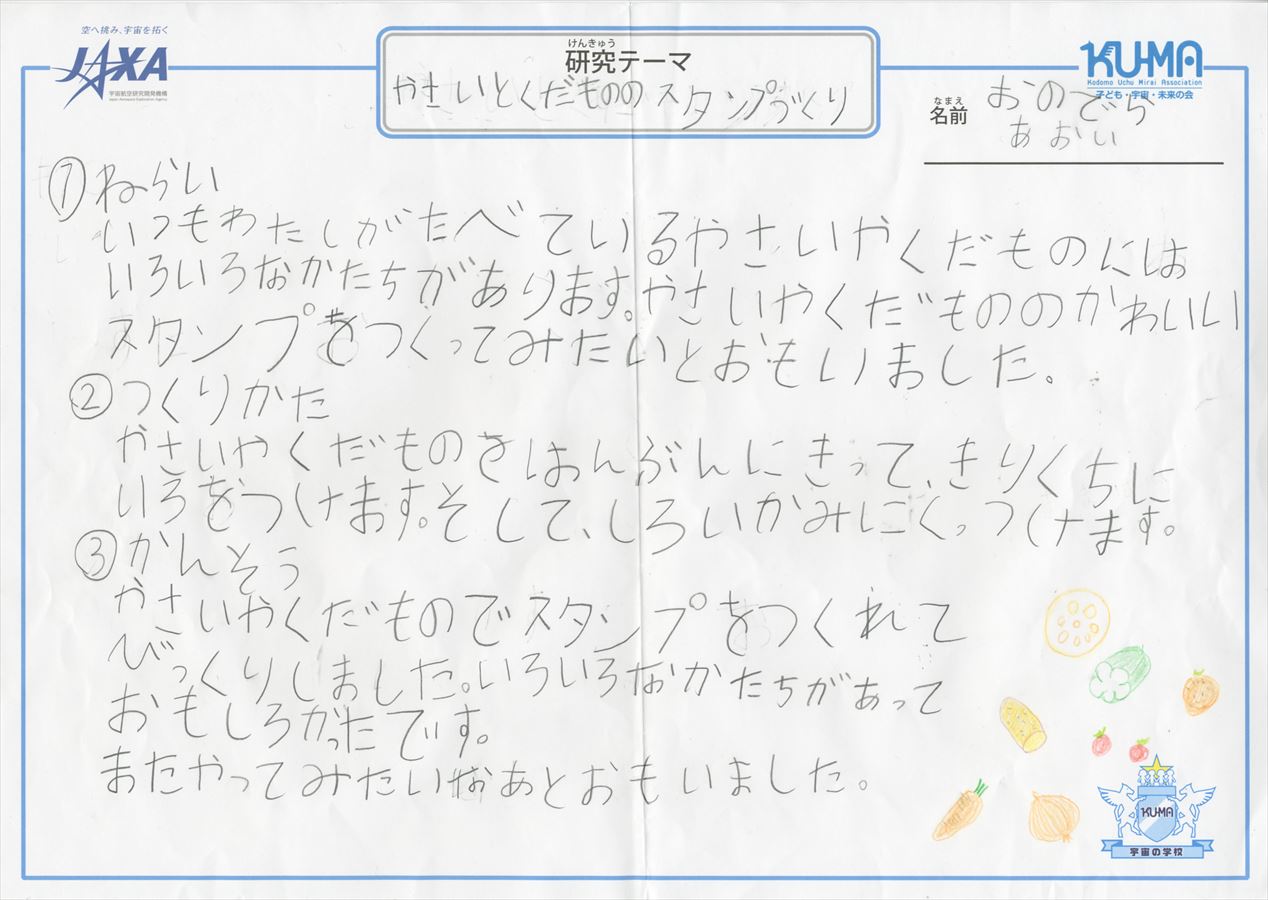 空へ挑み、宇宙を拓く
JAXA
宇宙航空研究開発機構
Japan Aerospace Exploration Agency
けんきゅう
研究テーマ
やさいとくだもののスタンプづくり
KU-MA
Kodomo Uchu Mirai Association
子ども・宇宙・未来の会
なまえ
名前
おのでら
あおい
①ねらい
いつもわたしがたべているやさいやくだものには
いろいろなかたちがあります。やさいやくだもののかわいい
スタンプをつくってみたいとおもいました。
②つくりかた
やさいやくだものをはんぶんにきって、きりくちに
いろをつけます。そして、しろいかみにくっつけます。
③かんそう
やさいやくだものでスタンプをつくれて
びっくりしました。いろいろなかたちがあって
おもしろかったです。
またやってみたいなあとおもいました。
KU-MA
宇宙の学校